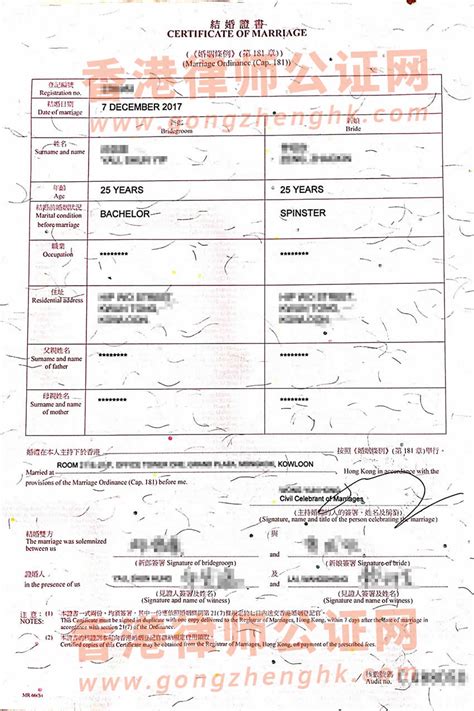 結婚證書
CERTIFICATE OF MARRIAGE
(《婚姻條例》(第181章))
(Marriage Ordinance (Cap. 181))
香港律师公证网
www.gongzhenghk.com
登記編號
Registration no.
結婚日期
Date of marriage
7 DECEMBER 2017
新郎
Bridegroom
新娘
Bride
姓名
Surname and name
年齡
Age
25 YEARS
25 YEARS
結婚前婚姻狀況
Marital condition
before marriage
BACHELOR
SPINSTER
職業
Occupation
********
********
住址
Residential address
HIP WO STREET,
KWUN TONG,
KOWLOON
HIP WO STREET,
KWUN TONG,
KOWLOON
父親姓名
Surname and name
of father
********
********
母親姓名
Surname and name
of mother
********
********
婚禮在本人主持下於香港
按照《婚姻條例》(第181章)舉行。
Married at
ROOM OFFICE TOWER ONE, GRAND PLAZA, MONGKOK, KOWLOON
Hong Kong in accordance with the
provisions of the Marriage Ordinance (Cap. 181) before me.
Civil Celebrant of Marriages
(主持婚禮的人的簽署、姓名及職銜)
(Signature, name and title of the person celebrating the marriage)
結婚雙方
The marriage was solemnized
between us
與
and
(新郎簽署) Signature of bridegroom)
(新娘簽署 Signature of bride)
證婚人
in the presence of us
及
and
(見證人簽署及姓名)
(Signature and name of witness)
(見證人簽署及姓名)
(Signature and name of witness)
注意:
NOTES:
(1)
This Certificate must be signed in duplicate with one copy delivered to the Registrar of Marriages, Hong Kong, within 7 days after the date of marriage in
accordance with section 21(7) of the Ordinance.
(2)
Certified copies of this Certificate may be obtained from the Registrar of Marriages, Hong Kong, on payment of the prescribed fees.
香港律师公证网
www.gongzhenghk.com
核數編號
Audit no.